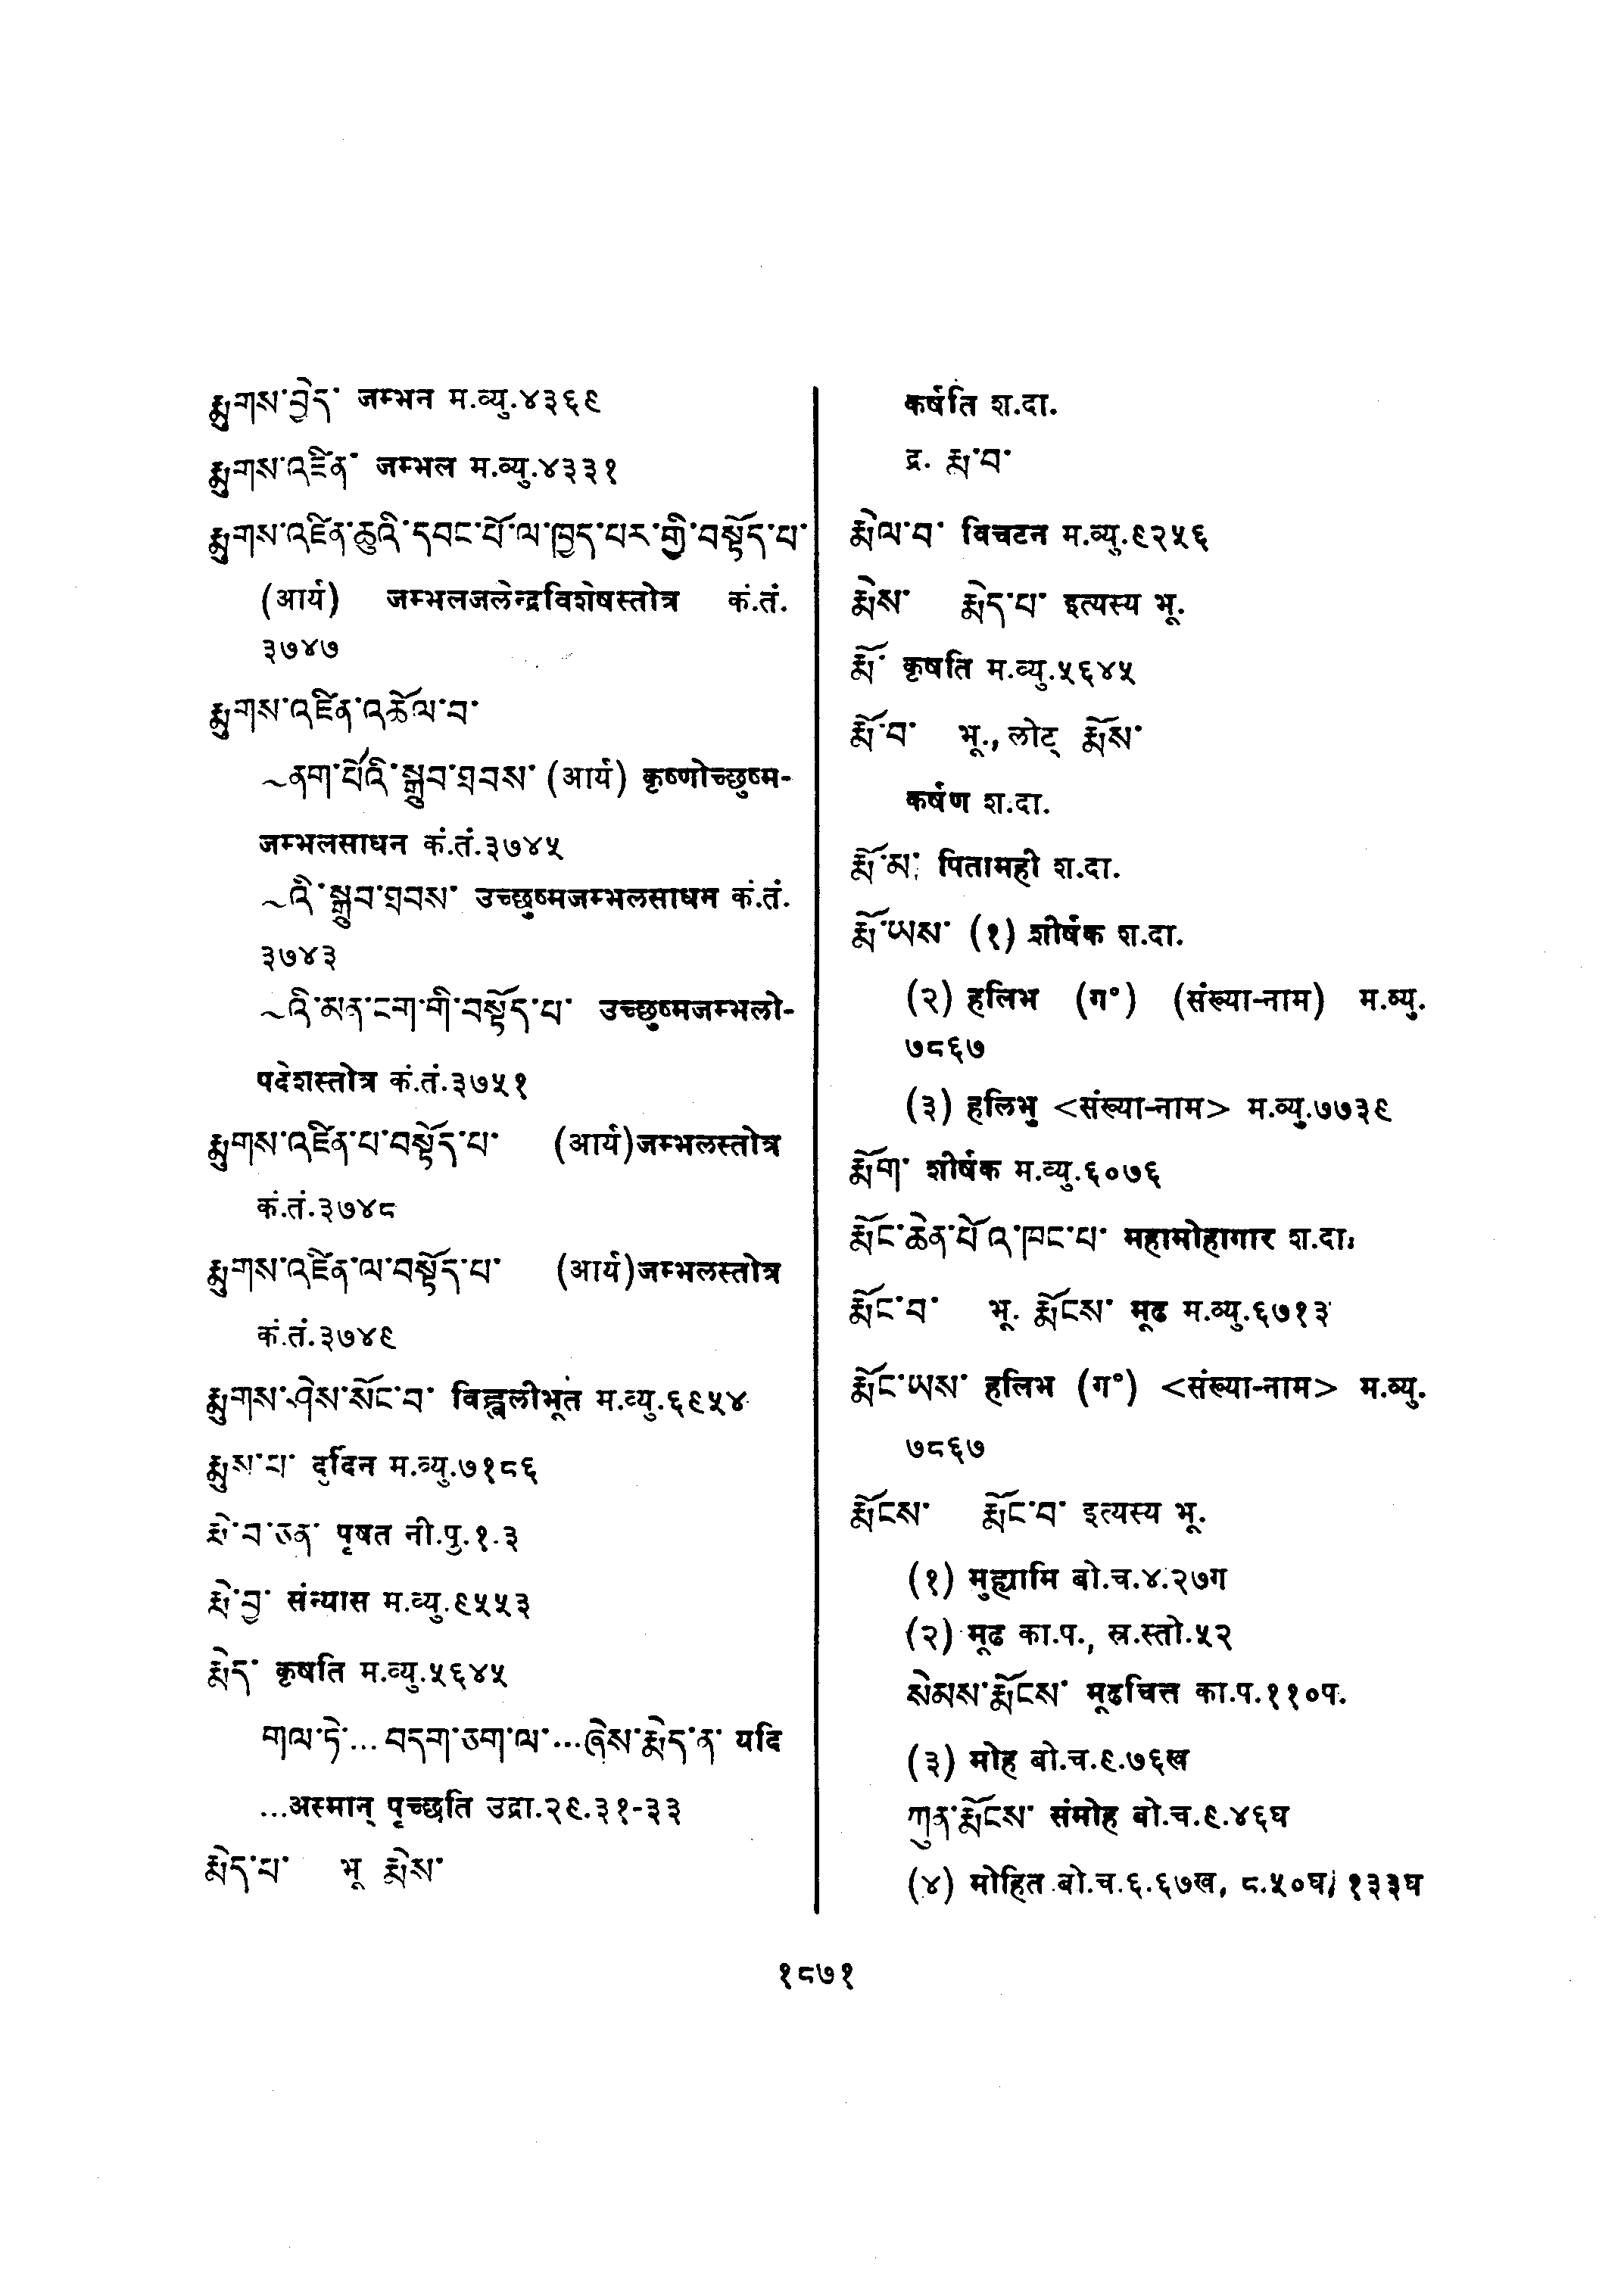 རྨུགས་བྱེད་ जम्भन म.व्यु.४३६९
རྨུགས་འཛིན་ जम्भल म.व्यु.४३३१
རྨུགས་འཛིན་ཆུའི་དབང་པོ་ལ་ཁྱད་པར་གྱི་བསྟོད་པ་
(आर्य) जम्भलजलेन्द्रविशेषस्तोत्र कं.तं.
३७४७
རྨུགས་འཛིན་འཆོལ་བ་
~ནག་པོའི་སྒྲུབ་ཐབས་ (आर्य) कृष्णोच्छुष्म-
जम्भलसाधन कं.तं.३७४५
~འི་སྒྲུབ་ཐབས་ उच्छुष्मजम्भलसाधन कं.तं.
३७४३
~འི་མན་ངག་གི་བསྟོད་པ་ उच्छुष्मजम्भलो-
पदेशस्तोत्र कं.तं.३७५१
རྨུགས་འཛིན་པ་བསྟོད་པ་ (आर्य)जम्भलस्तोत्र
कं.तं.३७४८
རྨུགས་འཛིན་ལ་བསྟོད་པ་ (आर्य)जम्भलस्तोत्र
कं.तं.३७४९
རྨུགས་ཤེས་སོང་བ་ विह्वलीभूत म.व्यु.६९५४
རྨུས་པ་ दुर्दिन म.व्यु.७१८६
རྨེ་བ་ཅན་ पृषत नी.पु.१.३
རྨེ་བྱ་ संन्यास म.व्यु.९५५३
རྨེད་ कृषति म.व्यु.५६४५
གལ་ཏེ་... བདག་ཅག་ལ་...ཞེས་རྨེད་ན་ यदि
...अस्मान् पृच्छति उद्रा.२९.३१-३३
རྨེད་པ་ भू རྨེས་
कर्षति श.दा.
द्र. རྨ་བ་
རྨེལ་བ་ विचटन म.व्यु.९२५६
རྨེས་ རྨེད་པ་ इत्यस्य भू.
རྨོ་ कृषति म.व्यु.५६४५
རྨོ་བ་ भू., लोट् རྨོས་
कर्षण श.दा.
རྨོ་མ་ पितामही श.दा.
རྨོ་ཡས་ (१) शीर्षक श.दा.
(२) हलिभ (ग°) (संख्या-नाम) म.व्यु.
७८६७
(३) हलिभु <संख्या-नाम> म.व्यु.७७३९
རྨོག་ शीर्षक म.व्यु.६०७६
རྨོང་ཆེན་པོའ་ཁང་པ་ महामोहागार श.दा.
རྨོང་བ་ भू. རྨོངས་ मूढ म.व्यु.६७१३
རྨོང་ཡས་ हलिभ (ग°) <संख्या-नाम> म.व्यु.
७८६७
རྨོངས་ རྨོང་བ་ इत्यस्य भू.
(१) मुह्यामि बो.च.४.२७ग
(२) मूढ का.प., स्र.स्तो.५२
སེམས་རྨོངས་ मूढचित्त का.प.११०प.
(३) मोह बो.च.९.७६ख
ཀུན་རྨོངས་ संमोह बो.च.९.४६घ
(४) मोहित बो.च.६.६७ख, ८.५०घ, १३३घ
१८७१